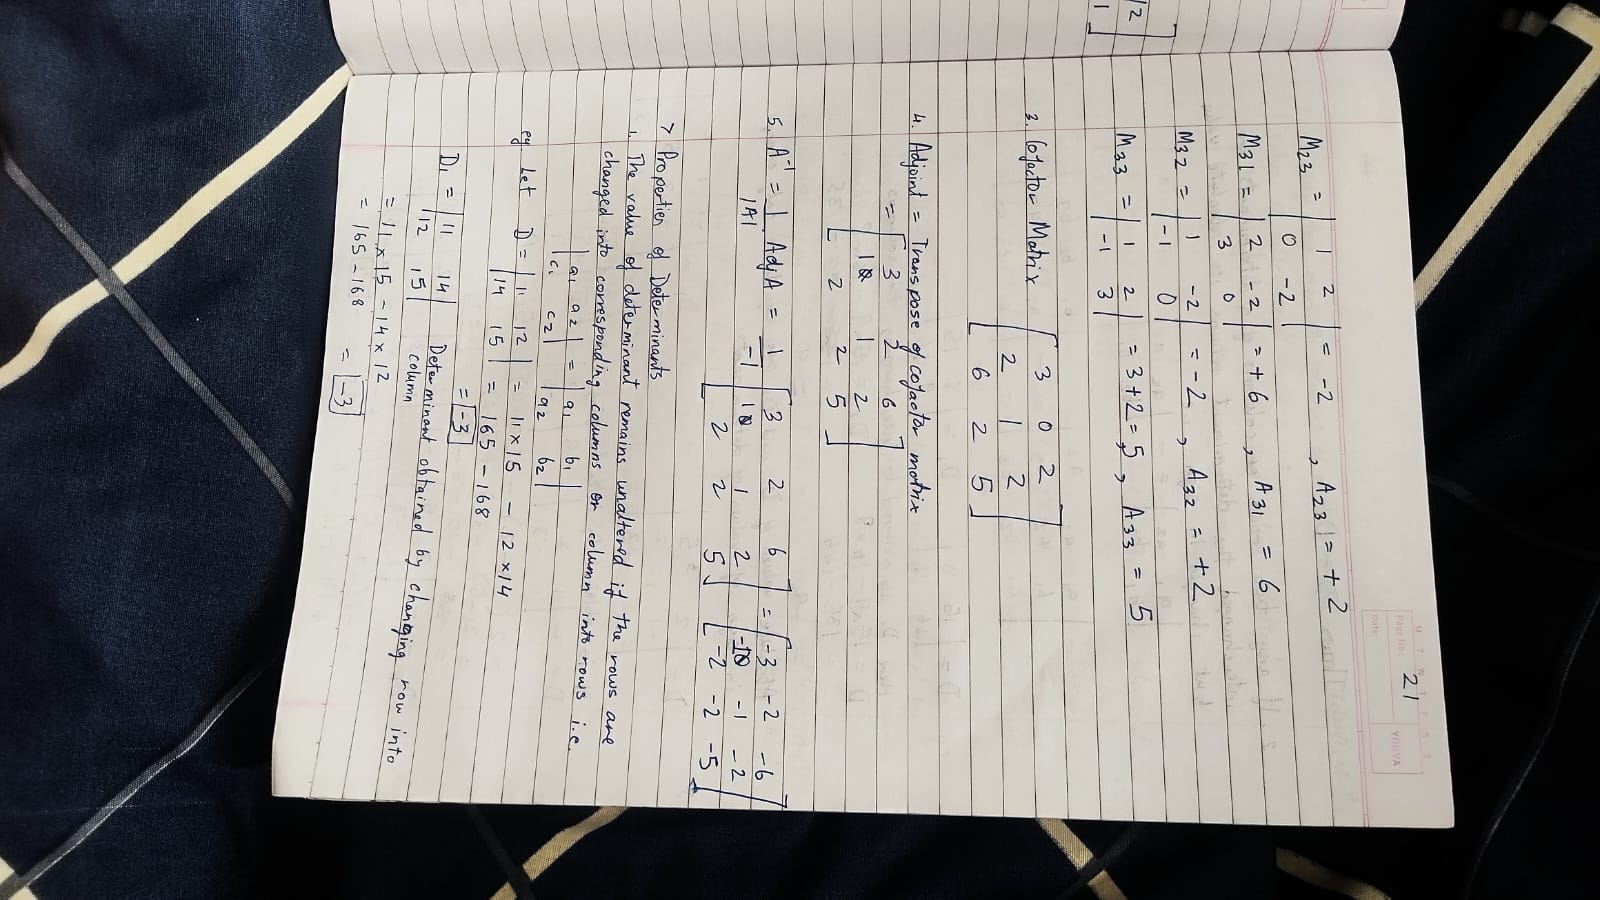 M T W T F S S
Page No.: 21
YOUVA
Date:
M23 = | 1 2 | = -2 , A23 = + 2
| 0 -2 |
M31 = | 2 -2 | = + 6 , A31 = 6
| 3 0 |
M32 = | 1 -2 | = -2 , A32 = +2
| -1 0 |
M33 = | 1 2 | = 3+2 = 5 , A33 = 5
| -1 3 |
12
1
3. Cofactor Matrix [ 3 0 2
2 1 2
6 2 5 ]
4. Adjoint = Transpose of cofactor matrix
= [ 3 2 6
1 2
2 2 5 ]
5. A-1 = 1 Adj A = 1 [ 3 2 6 ] = [ -3 -2 -6 ]
|A| -1 1 2 -1 -2
2 2 5 -2 -2 -5
> Properties of Determinants
1. The value of determinant remains unaltered if the rows are
changed into corresponding columns or column into rows i.e.
| a1 a2 | = | a1 b1 |
| c1 c2 | | a2 b2 |
eg Let D = | 11 12 | = 11 x 15 - 12 x 14
| 14 15 | = 165 - 168
= -3
D1 = | 11 14 | Determinant obtained by changing row into
| 12 15 | column
= 11 x 15 - 14 x 12
= 165 - 168 = -3